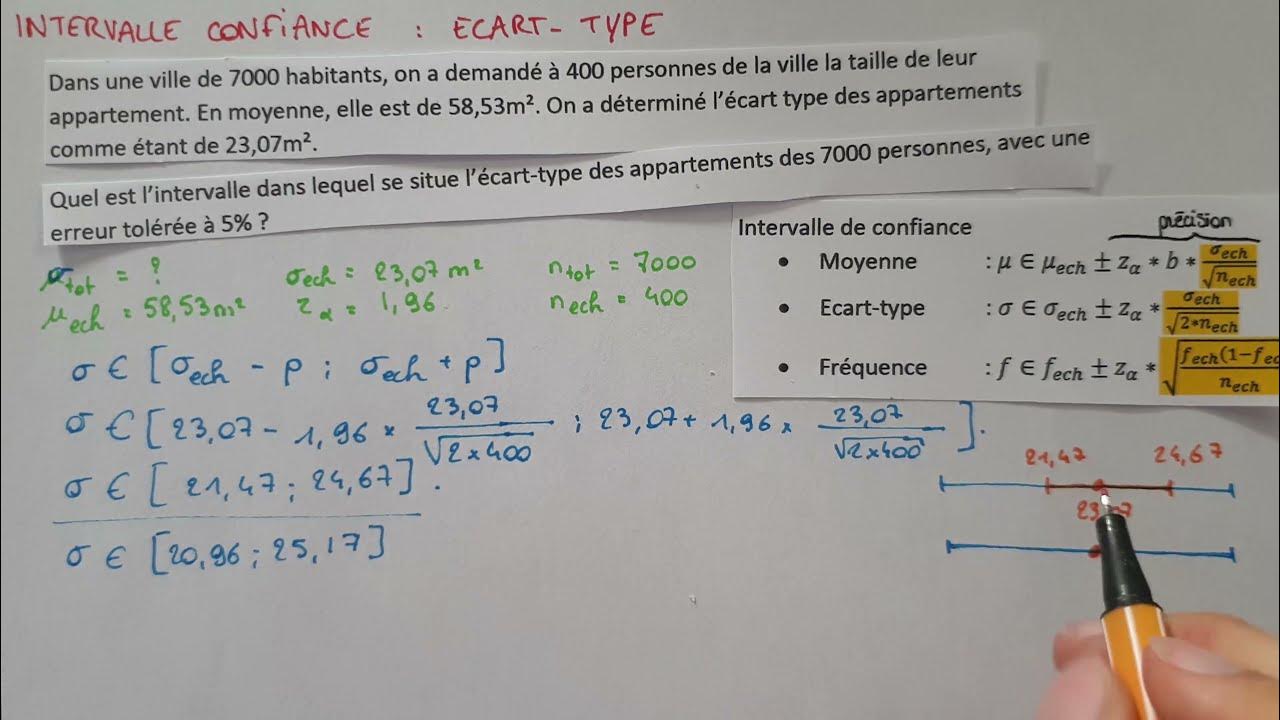 INTERVALLE CONFIANCE : ECART-TYPE
Dans une ville de 7000 habitants, on a demandé à 400 personnes de la ville la taille de leur
appartement. En moyenne, elle est de 58,53m². On a déterminé l'écart type des appartements
comme étant de 23,07m².
Quel est l'intervalle dans lequel se situe l'écart-type des appartements des 7000 personnes, avec une
erreur tolérée à 5% ?
précision
Intervalle de confiance
• Moyenne : μ ∈ μech ± zα * b * σech/√nech
• Ecart-type : σ ∈ σech ± zα * σech/√2*nech
• Fréquence : f ∈ fech ± zα * √fech(1−fec/nech
σtot = ? σech = 23,07 m² ntot = 7000
μech = 58,53m² zα = 1,96 nech = 400
σ ∈ [σech - p ; σech + p]
σ ∈ [23,07 - 1,96 × 23,07/√2×400 ; 23,07 + 1,96 × 23,07/√2×400].
σ ∈ [21,47 ; 24,67].
σ ∈ [20,96 ; 25,17]
21,47 24,67